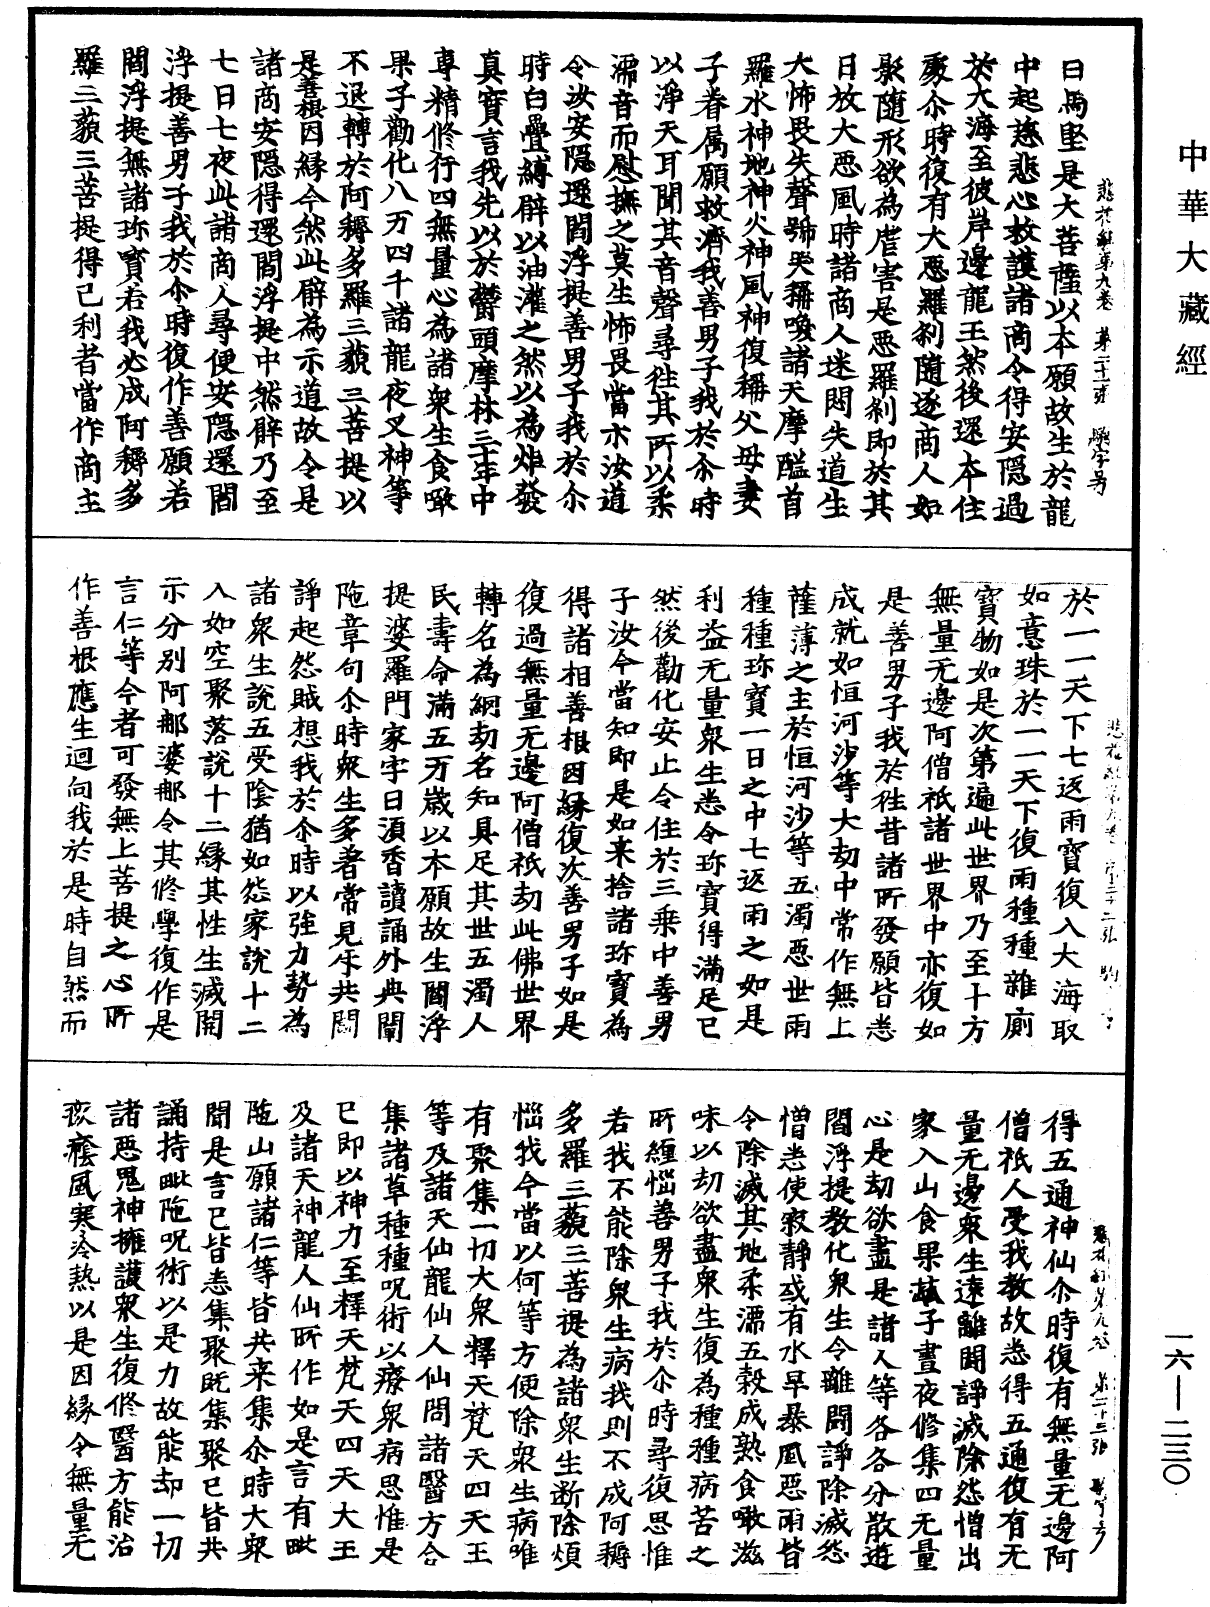 中華大藏經
曰馬堅是大菩薩以本願故生於龍
中起慈悲心救護諸商令得安隱過
於大海至彼岸邊龍王然後還本住
處尒時復有大惡羅刹隨逐商人如
影隨形欲為虐害是惡羅刹即於其
日放大惡風時諸商人迷悶失道生
大怖畏失聲號哭稱喚諸天摩醯首
羅水神地神火神風神復稱父母妻
子眷属願救濟我善男子我於尒時
以淨天耳聞其音聲尋往其所以柔
濡音而慰撫之莫生怖畏當示汝道
令汝安隱還閻浮提善男子我於尒
時白疊縛臂以油灌之然以為炬發
真實言我先以於欝頭摩林三十年中
專精修行四無量心為諸衆生食噉
果子勸化八万四千諸龍夜叉神等
不退轉於阿耨多羅三藐三菩提以
是善根因緣今然此臂為示道故令是
諸商安隱得還閻浮提中然臂乃至
七日七夜此諸商人尋便安隱還閻
浮提善男子我於尒時復作善願若
閻浮提無諸珎寳若我必成阿耨多
羅三藐三菩提得己利者當作商主
於一一天下七返雨寳復入大海取
如意珠於一一天下復雨種種雜廁
寳物如是次第遍此世界乃至十方
無量无邊阿僧祇諸世界中亦復如
是善男子我於往昔諸所發願皆悉
成就如恒河沙等大劫中常作無上
薩薄之主於恒河沙等五濁惡世雨
種種珎寳一日之中七返雨之如是
利益无量衆生悉令珎寳得滿足已
然後勸化安止令住於三乗中善男
子汝今當知即是如来捨諸珎寳為
得諸相善根因緣復次善男子如是
復過無量无邊阿僧祇劫此佛世界
轉名為網劫名知具足其世五濁人
民壽命滿五万歲以本願故生閻浮
提婆羅門家字曰湏香讀誦外典闡
陁章句尒時衆生多著常見生共鬪
諍起怨賊想我於尒時以強力勢為
諸衆生說五受陰猶如怨家說十二
入如空聚落說十二緣其性生滅開
示分别阿那婆那令其修學復作是
言仁等今者可發無上菩提之心所
作善根應生迴向我於是時自然而
得五通神仙尒時復有無量无邊阿
僧祇人受我教故悉得五通復有无
量无邊衆生遠離鬪諍滅除怨憎出
家入山食果蓏子晝夜修集四无量
心是劫欲盡是諸人等各各分散遊
閻浮提教化衆生令離鬪諍除滅怨
憎悉使寂靜或有水旱暴風惡雨皆
令除滅其地柔濡五穀成熟食噉滋
味以劫欲盡衆生復為種種病苦之
所纏惱善男子我於尒時尋復思惟
若我不能除衆生病我則不成阿耨
多羅三藐三菩提為諸衆生断除煩
惱我今當以何等方便除衆生病唯
有聚集一切大衆釋天梵天四天王
等及諸天仙龍仙人仙問諸醫方合
集諸草種種呪術以療衆病思惟是
已即以神力至釋天梵天四天大王
及諸天神龍人仙所作如是言有毗
陁山願諸仁等皆共来集尒時大衆
聞是言已皆悉集聚旣集聚已皆共
誦持毗陁呪術以是力故能却一切
諸惡鬼神擁護衆生復修醫方能治
痰癊風寒冷熱以是因緣令無量无
一六—二三〇